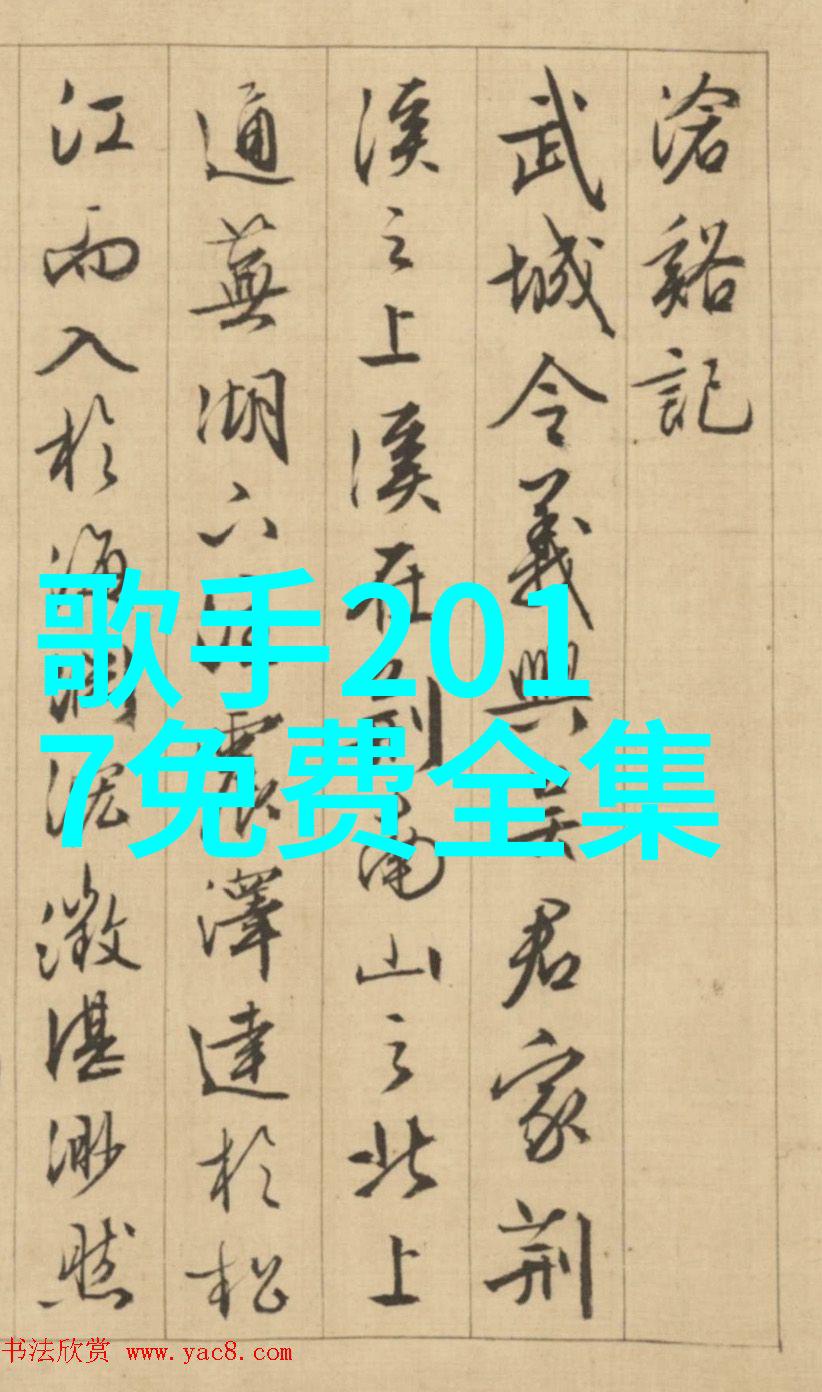 滄谿記
武城令義興吳君家荆
溪之上溪在荆南山之北上
通蕪湖下震澤達於松
江而入於海澂湛渺然
歌手201
7免费全集
书法欣赏 www.yac8.com